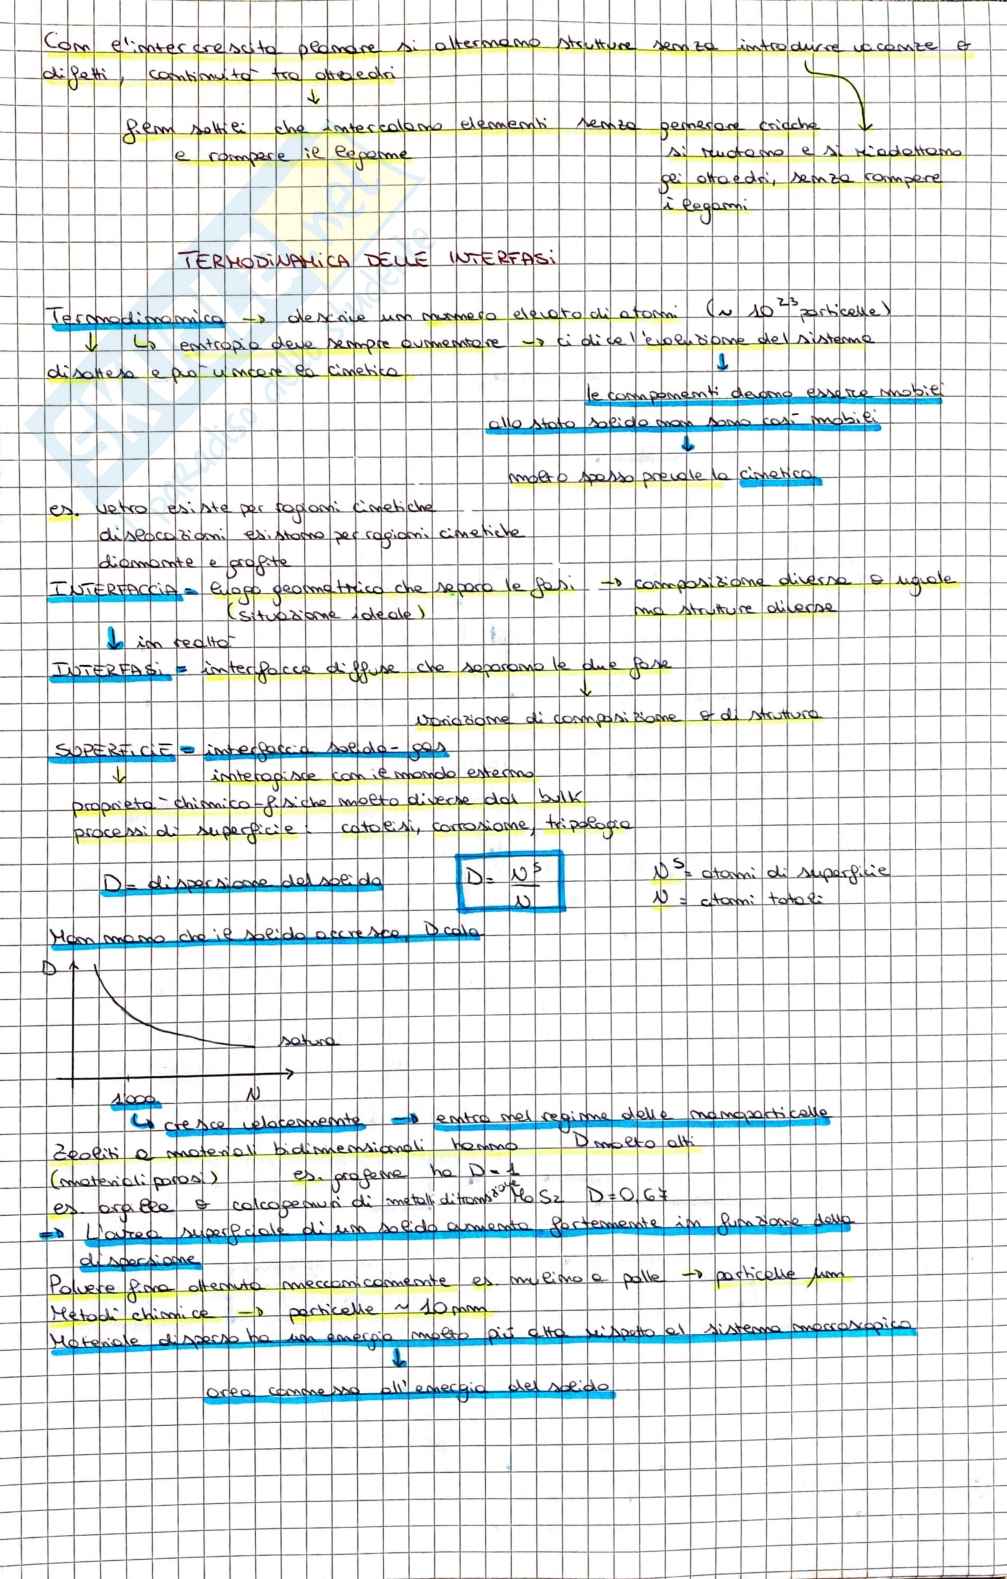 Con l'intercrescita planare si alternano strutture senza introdurre vacanze e
difetti, continuità tra ottaedri
film sottili che intercalano elementi senza generare cricche
e rompere il legame
si ruotano e si riadattano
gli ottaedri, senza rompere
i legami
TERMODINAMICA DELLE INTERFASI
Termodinamica → descrive un numero elevato di atomi (~ 10²³ particelle)
↳ entropia deve sempre aumentare → ci dice l'evoluzione del sistema
disattesa e può vincere la cinetica
le componenti devono essere mobili
allo stato solido non sono così mobili
molto spesso prevale la cinetica
es. vetro esiste per ragioni cinetiche
dislocazioni esistono per ragioni cinetiche
diamante e grafite
INTERFACCIA = luogo geometrico che separa le fasi → composizione diversa o uguale
(situazione ideale) ma strutture diverse
↓ in realtà
INTERFASI = interfacce diffuse che separano le due fase
variazione di composizione e di struttura
SUPERFICIE = interfaccia solido-gas
interagisce con il mondo esterno
proprietà chimico-fisiche molto diverse dal bulk
processi di superficie: catalisi, corrosione, tripologia
D = dispersione del solido D = Nˢ/N Nˢ = atomi di superficie
N = atomi totali
Man mano che il solido accresce, D cala
D
satura
1000 N
↳ cresce velocemente → entra nel regime delle nanoparticelle
Zeoliti o materiali bidimensionali hanno D molto alti
(materiali porosi) es. grafene ha D = 1
es. argille e calcogenuri di metalli di transizione MoS2 D = 0,67
⇒ L'area superficiale di un solido aumenta fortemente in funzione della
dispersione
Polvere fina ottenuta meccanicamente es. mulino a palle → particelle µm
Metodi chimici → particelle ~ 10 nm
Materiale disperso ha un energia molto più alta rispetto al sistema macroscopico
area connessa all'energia del solido